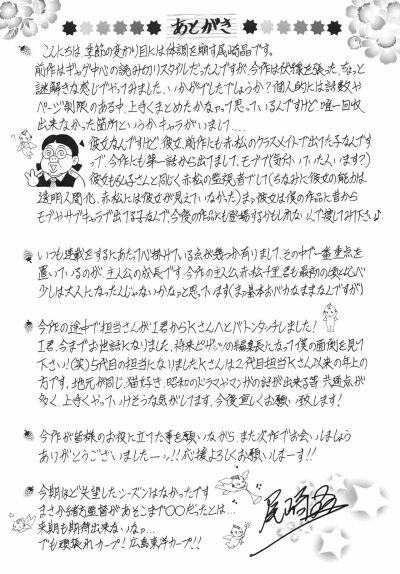 あとがき
こんにちは、季節の変わり目には体調を崩す尾崎晶です。
前作はギャグ中心の読み切りスタイルだったんですが、今作は伏線を張った、ちょっと
謎解きな感じでやってみました、いかがでしたでしょうか？個人的には話数や
ページ制限のある中、上手くまとめたかなぁって思っているんですけど、唯一回収
出来なかった箇所というかキャラがいまして....
彼女なんですけど、彼女、前作にも赤松のクラスメイトで出てた子なんです
って、今作にも第一話から出てまして、モブで（気付いていた人います？）
彼女も弘子さんと同じく赤松の監視者でして（ちなみに彼女の能力は
透明人間化、赤松には彼女が見えていなかった）まぁ彼女は僕の作品に昔から
モブやサブキャラで出てる子なんで、今後の作品にも登場するかもしれないんで捜してみて下さい♪
いつも連載をするにあたって心掛けている点が幾つか有りまして、その中で一番重点を
置いているのが、主人公の成長です。今作の主人公、赤松千里君も最初の頃と比べ
少しは大人になったんじゃないかなぁと思っています（まぁ基本おバカなままなんですが）
今作の途中で担当さんがI君からKさんへとバトンタッチしました！
I君、今までお世話になりました、将来ビザッツの編集長になって僕の面倒を見て
下さい！（笑）5代目の担当になりましたKさんは2代目担当Kさん以来の年上の
方です、地元が同じ、猫好き、昭和のドラマやマンガの話が出来る等、共通点が
多く、上手くやっていけそうな気がしてます、今後宜しくお願い致します！
今作が皆様のお役に立てた事を願いながら、また次作でお会いしましょう
ありがとうございましたーッ！！応援よろしくお願いしまーす！！
今期ほど失望したシーズンはなかったです
まさか緒方監督があそこまで〇〇だったとは…
来期も期待出来ないなぁ…
でも頑張れカープ！広島東洋カープ！！
尾崎晶